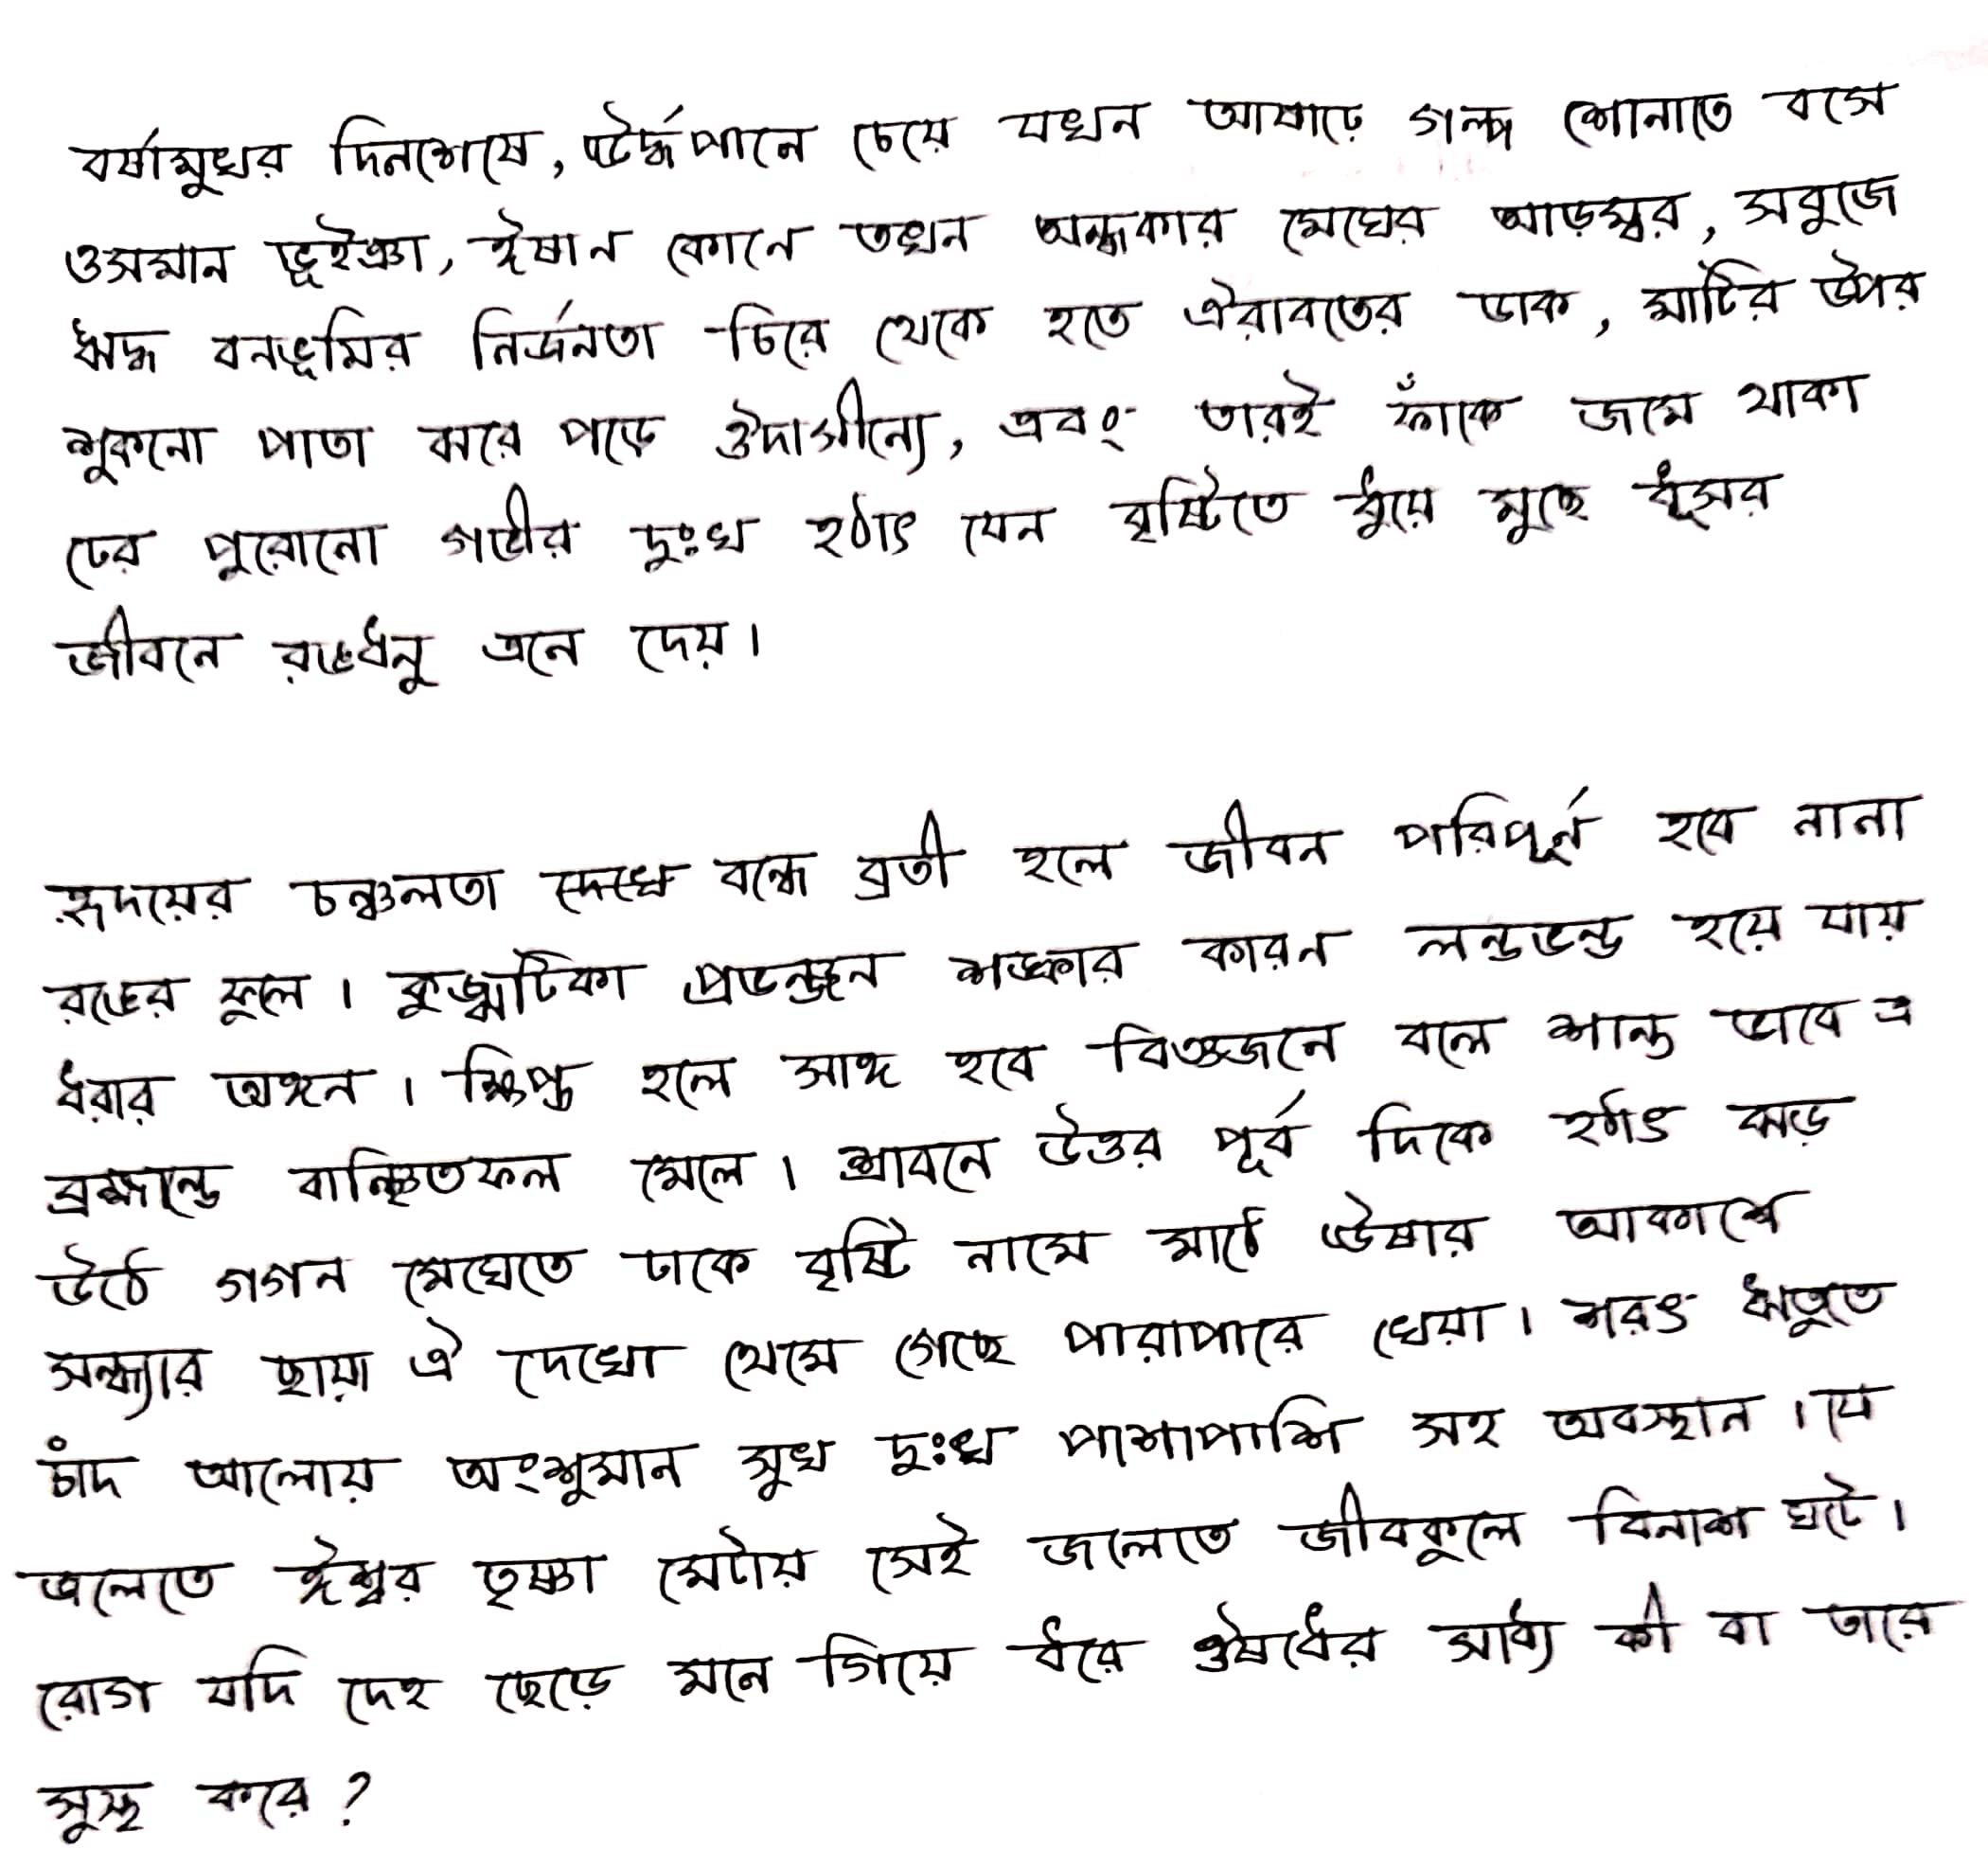 বর্ষামুখর দিনশেষে, ঊর্দ্ধপানে চেয়ে যখন আষাঢ়ে গল্প শোনাতে বসে
ওসমান ভূইঞা, ঈষান কোনে তখন অন্ধকার মেঘের আড়ম্বর, সবুজে
ঋদ্ধ বনভূমির নির্জনতা চিরে থেকে হতে ঐরাবতের ডাক, মাটির উপর
শুকনো পাতা ঝরে পড়ে ঔদাসীন্যে, এবং তারই ফাঁকে জমে থাকা
ঢের পুরোনো গভীর দুঃখ হঠাৎ যেন বৃষ্টিতে ধুঁয়ে মুছে ধূসর
জীবনে রঙধনু এনে দেয়।
হৃদয়ের চঞ্চলতা বন্ধে ব্রতী হলে জীবন পরিপূর্ণ হবে নানা
রঙের ফুলে। কুজ্ঝটিকা প্রভঞ্জন শঙ্কার কারন লন্ডভন্ড হয়ে যায়
ধরার অঙ্গন। ক্ষিপ্ত হলে সাঙ্গ হবে বিজ্ঞজনে বলে শান্ত ভাবে এ
ব্রহ্মান্ডে বাঞ্ছিতফল মেলে। শ্রাবনে উত্তর পূর্ব দিকে হঠাৎ ঝড়
উঠে গগন মেঘেতে ঢাকে বৃষ্টি নামে মাঠে ঊষার আকাশে
সন্ধ্যার ছায়া ঐ দেখো থেমে গেছে পারাপারে খেয়া। শরৎ ঋতুতে
চাঁদ আলোয় অংশুমান সুখ দুঃখ পাশাপাশি সহ অবস্থান। যে
জলেতে ঈশ্বর তৃষ্ণা মেটায় সেই জলেতে জীবকুলে বিনাশ ঘটে।
রোগ যদি দেহ ছেড়ে মনে গিয়ে ধরে ঔষধের সাধ্য কী বা তারে
সুস্থ করে?